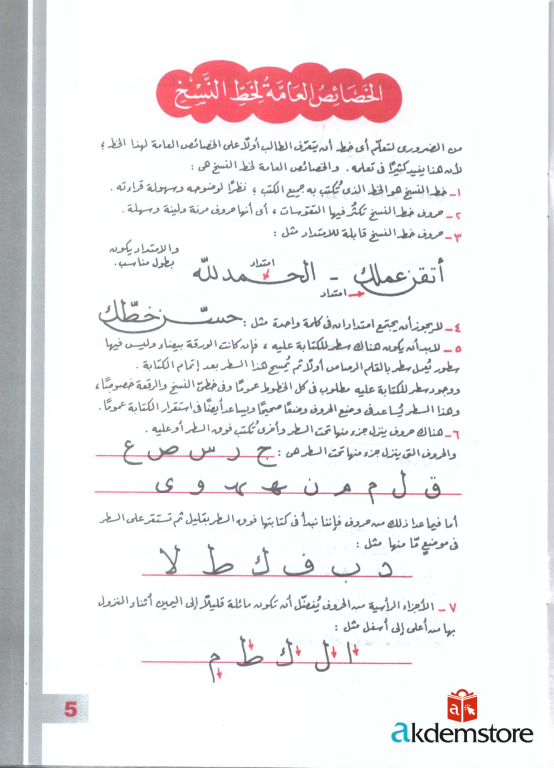 الخصائص العامة لخط النسخ
من الضرورى لتعلم أى خط أن يتعرف الطالب أولاً على الخصائص العامة لهذا الخط ؛
لأن هذا يفيد كثيرًا فى تعلمه . والخصائص العامة لخط النسخ هى :
١ـ خط النسخ هو الخط الذى تُكتب به جميع الكتب ؛ نظرًا لوضوحه وسهولة قراءته .
٢ـ حروف خط النسخ تكثُر فيها التقوسات ، أى أنها حروف مرنة ولينة وسهلة .
٣ـ حروف خط النسخ قابلة للامتداد مثل :
والامتداد يكون
بطول مناسب.
امتداد
أتقن عملك - الحمد لله
امتداد
٤ـ لا يجوز أن يجتمع امتدادان فى كلمة واحدة مثل : حسن خطك
٥ـ لابد أن يكون هناك سطر للكتابة عليه ، فإن كانت الورقة بيضاء وليس فيها
سطور يُعمل سطر بالقلم الرصاص أولاً ثم يُمسح هذا السطر بعد إتمام الكتابة .
ووجود سطر للكتابة عليه مطلوب فى كل الخطوط عمومًا وفى خطىّ النسخ والرقعة خصوصًا ،
وهذا السطر يُساعد فى وضع الحروف وضعًا صحيحًا ويساعد أيضًا فى استقرار الكتابة عمومًا.
٦ـ هناك حروف ينزل جزء منها تحت السطر وأخرى تُكتب فوق السطر أو عليه .
والحروف التى ينزل جزء منها تحت السطر هى : ج ر س ص ع
ق ل م م ن ه ه و ى
أما فيما عدا ذلك من حروف فإننا نبدأ فى كتابتها فوق السطر بقليل ثم تستقر على السطر
فى موضع مّا منها مثل :
د ب ف ك ط لا
٧ـ الأجزاء الرأسية من الحروف يُفضّل أن تكون مائلة قليلاً إلى اليمين أثناء النزول
بها من أعلى إلى أسفل مثل :
ا ل ك ط م
5
a
akdemstore